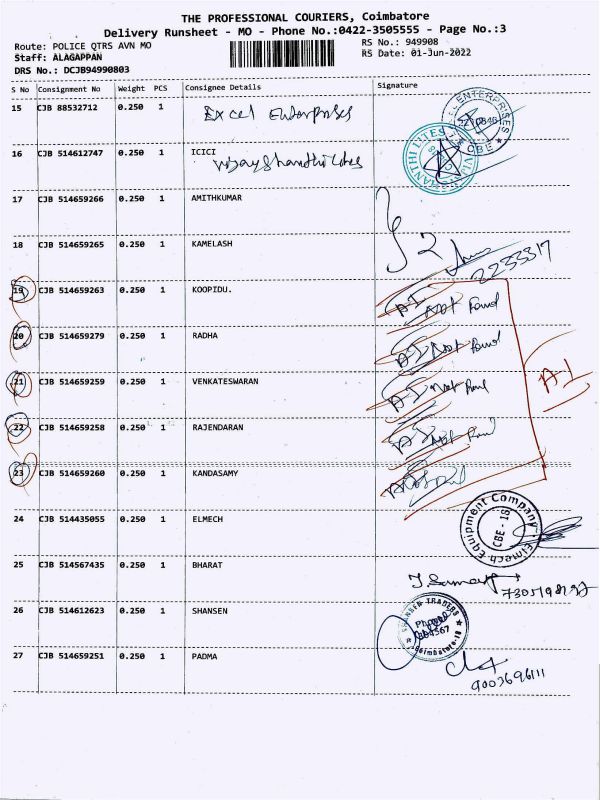 THE PROFESSIONAL COURIERS, Coimbatore
Delivery Runsheet - MO - Phone No.:0422-3505555 - Page No.:3
Route: POLICE QTRS AVN MO RS No.: 949908
Staff: ALAGAPPAN RS Date: 01-Jun-2022
DRS No.: DCJB94990803
S No Consignment No Weight PCS Consignee Details Signature
15 CJB 88532712 0.250 1 Excel Enterprises
16 CJB 514612747 0.250 1 ICICI
17 CJB 514659266 0.250 1 AMITHKUMAR
18 CJB 514659265 0.250 1 KAMELASH
2233317
19 CJB 514659263 0.250 1 KOOPIDU. A1 Not Found
20 CJB 514659279 0.250 1 RADHA A1 Not Found
21 CJB 514659259 0.250 1 VENKATESWARAN A1 Not
A1
22 CJB 514659258 0.250 1 RAJENDARAN A1 Not
23 CJB 514659260 0.250 1 KANDASAMY
24 CJB 514435055 0.250 1 ELMECH
Elmech Equipment Company CBE - 18
25 CJB 514567435 0.250 1 BHARAT
26 CJB 514612623 0.250 1 SHANSEN
SHANSEN TRADERS Coimbatore-18
27 CJB 514659251 0.250 1 PADMA
9003696111